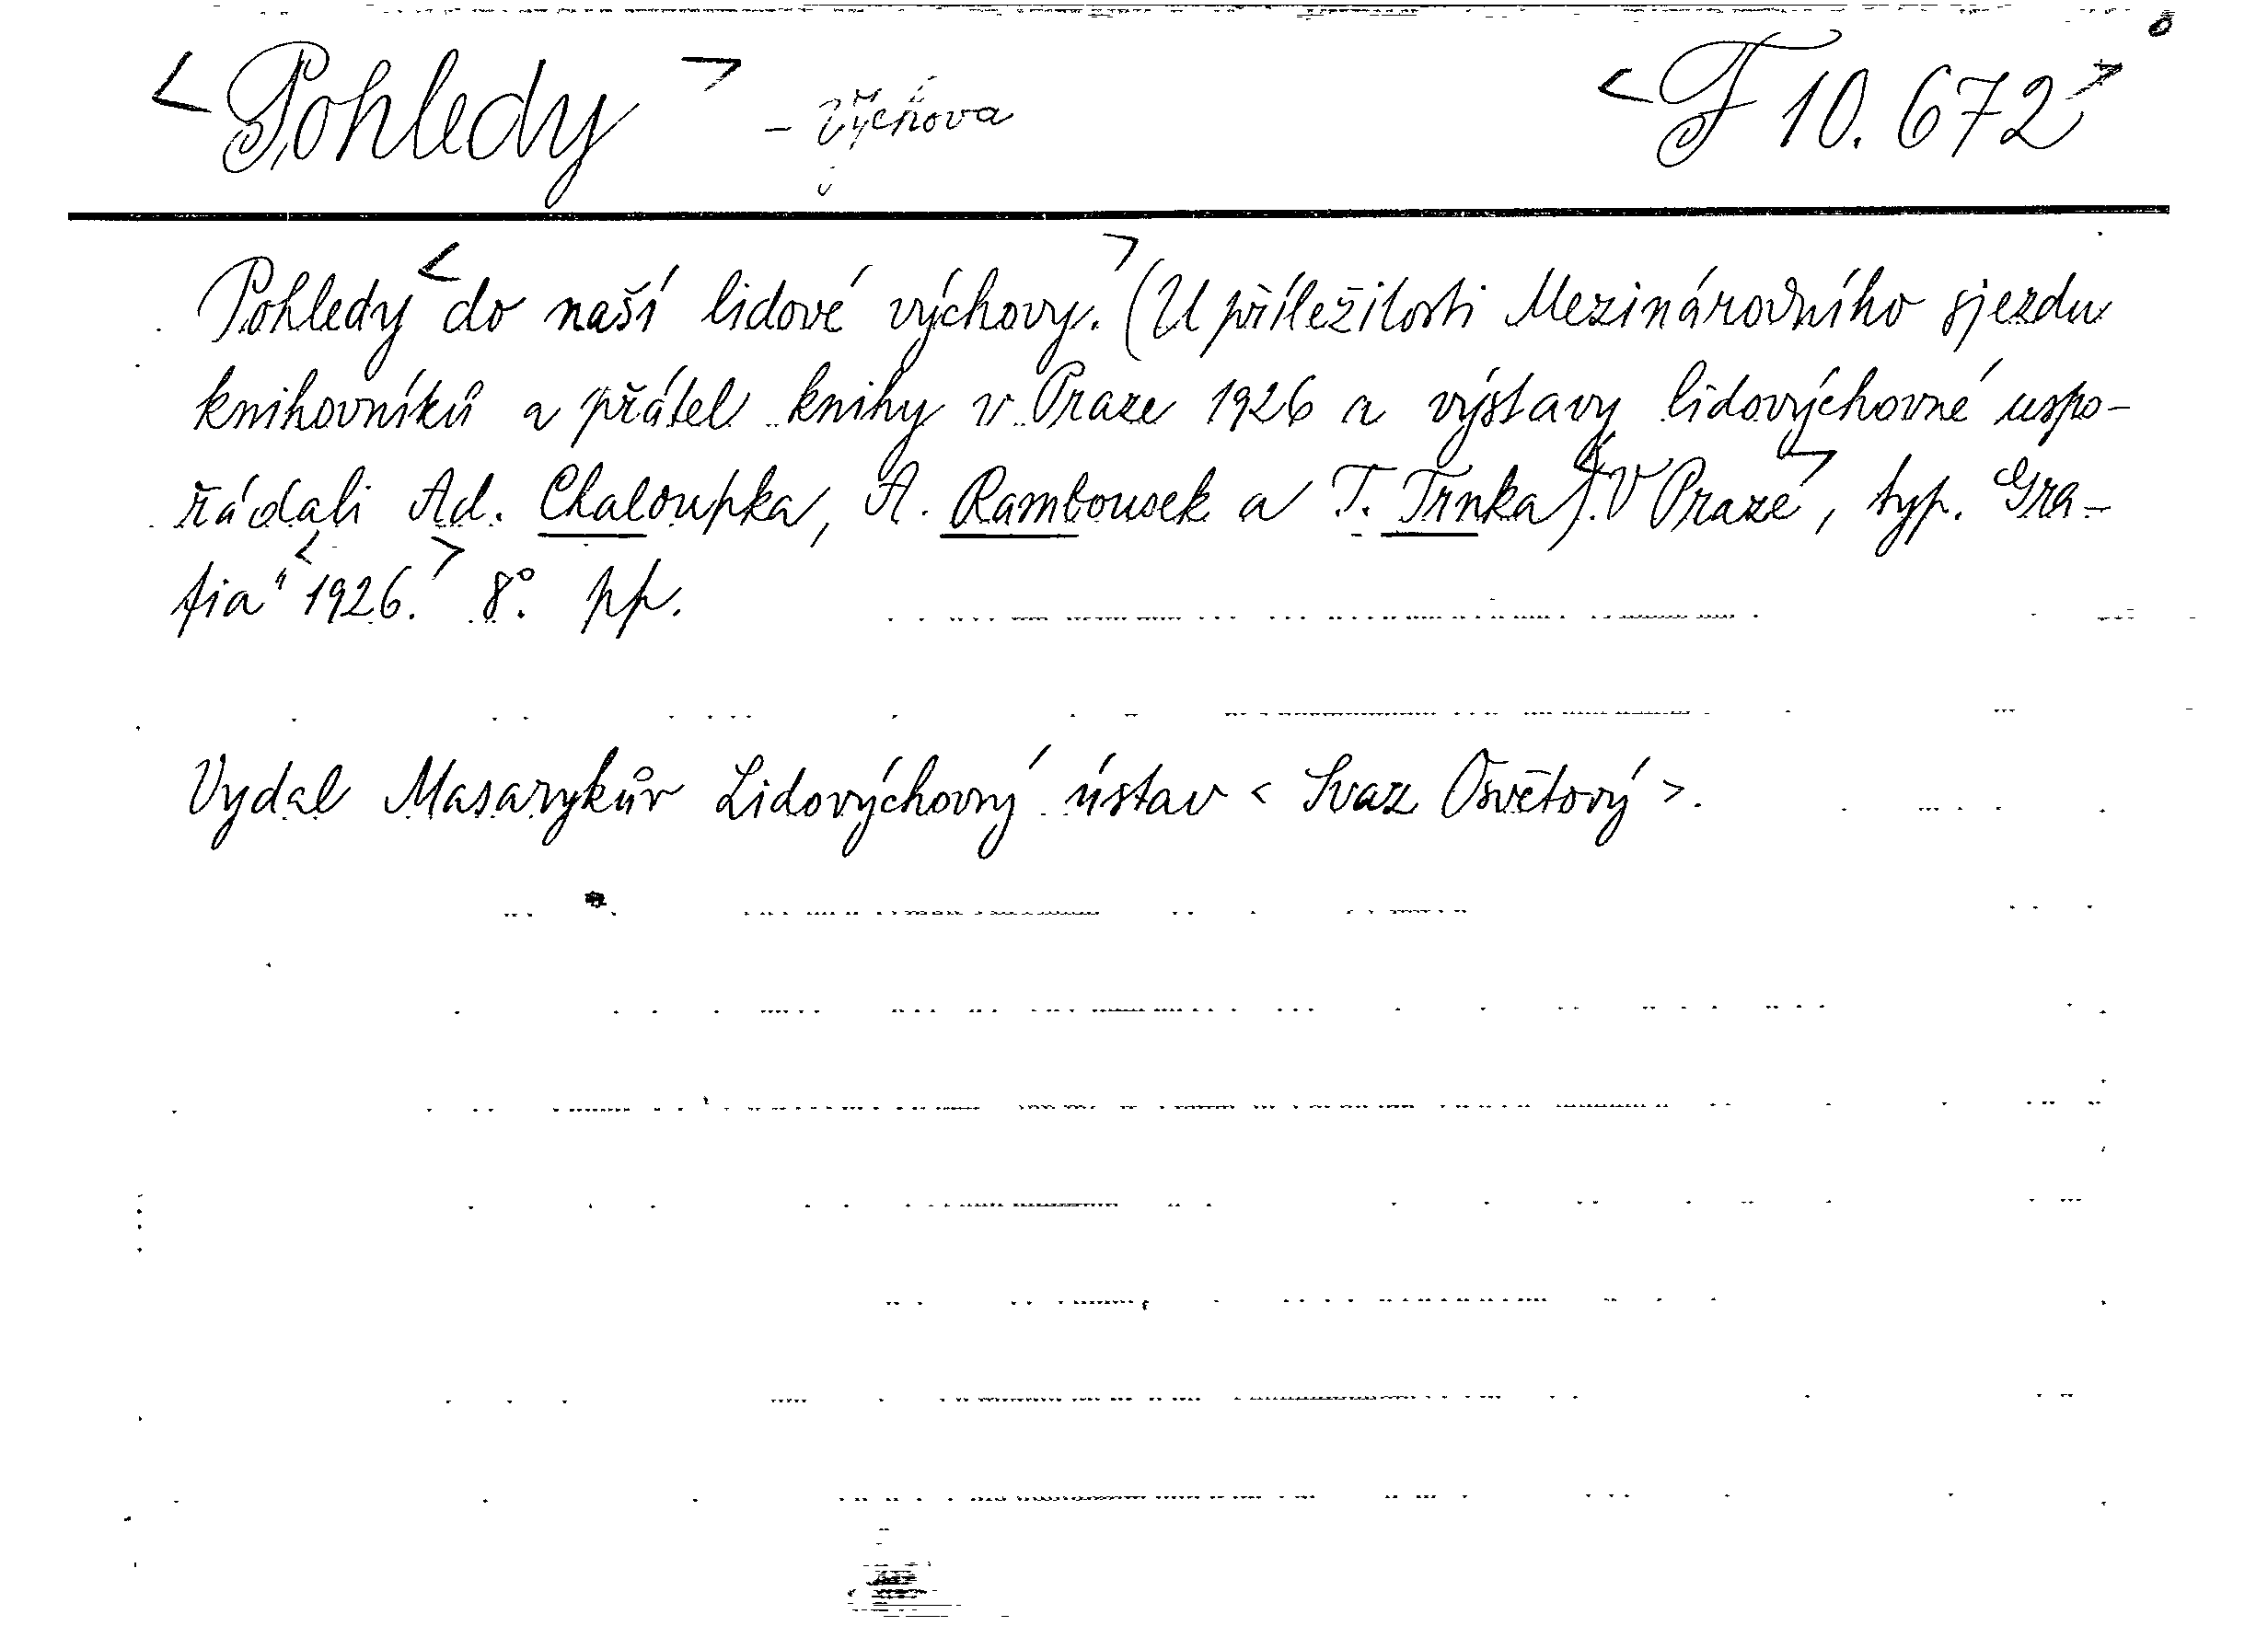 <Pohledy> - Výchova <F 10.672>
Pohledy <do naší lidové výchovy.> (U příležitosti Mezinárodního sjezdu
knihovníků a přátel knihy v Praze 1926 a výstavy lidovýchovné uspo-
řádali Ad. Chaloupka, A. Rambousek a T. Trnka). <V Praze>, typ. Gra-
fia" <1926.> 8°. pp.
Vydal Masarykův Lidovýchovný ústav < Svaz Osvětový >.